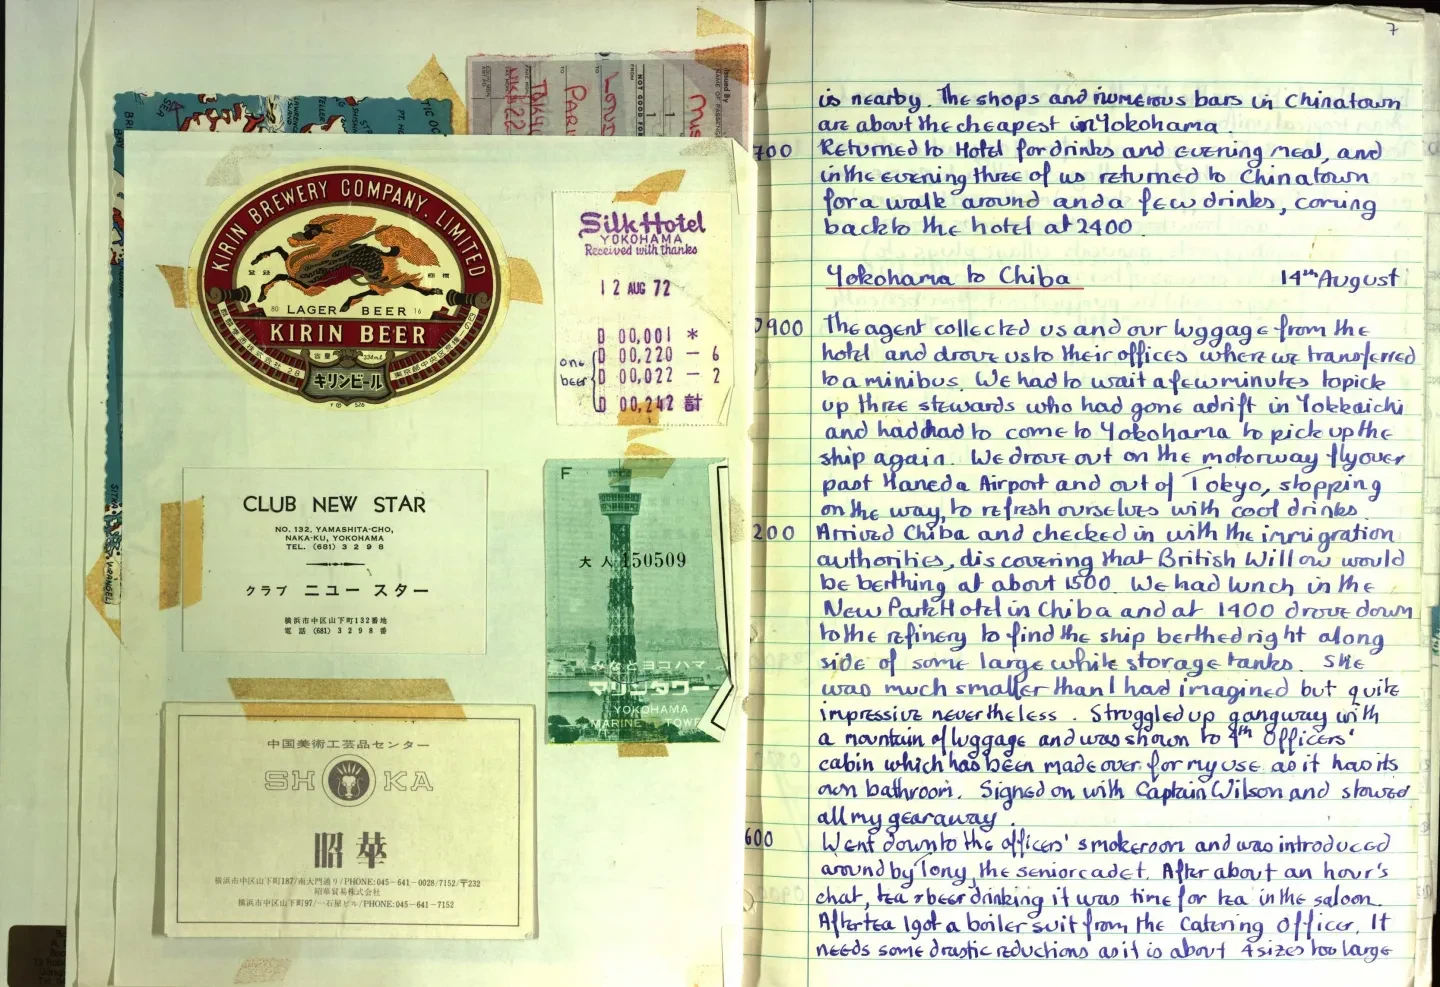 KIRIN BREWERY COMPANY, LIMITED
登録
商標
80 LAGER BEER 16
KIRIN BEER
キリンビール
Silk Hotel
YOKOHAMA
Received with thanks
12 AUG 72
D 00,001 *
D 00,220 - 6
D 00,022 - 2
D 00,242 計
one
beer
CLUB NEW STAR
NO. 132, YAMASHITA-CHO,
NAKA-KU, YOKOHAMA
TEL. (681) 3 2 9 8
クラブ ニュー スター
横浜市中区山下町132番地
電話 (681) 3 2 9 8 番
F
大人 150509
みなとヨコハマ
マリンタワー
YOKOHAMA
MARINE TOWE
中国美術工芸品センター
SHOKA
昭華
横浜市中区山下町187/南大門通り/PHONE:045-641-0028/7152/〒232
昭華貿易株式会社
横浜市中区山下町97/一石屋ビル/PHONE:045-641-7152
7
is nearby. The shops and numerous bars in Chinatown
are about the cheapest in Yokohama.
700 Returned to Hotel for drinks and evening meal, and
in the evening three of us returned to Chinatown
for a walk around and a few drinks, coming
back to the hotel at 2400.
Yokohama to Chiba 14th August
0900 The agent collected us and our luggage from the
hotel and drove us to their offices where we transferred
to a minibus. We had to wait a few minutes to pick
up three stewards who had gone adrift in Yokkaichi
and had had to come to Yokohama to pick up the
ship again. We drove out on the motorway flyover
past Haneda Airport and out of Tokyo, stopping
on the way, to refresh ourselves with cool drinks.
200 Arrived Chiba and checked in with the immigration
authorities, discovering that British Willow would
be berthing at about 1500. We had lunch in the
New Park Hotel in Chiba and at 1400 drove down
to the refinery to find the ship berthed right along
side of some large white storage tanks. She
was much smaller than I had imagined but quite
impressive nevertheless. Struggled up gangway with
a mountain of luggage and was shown to 4th Officers'
cabin which has been made over for my use as it has its
own bathroom. Signed on with Captain Wilson and stowed
all my gear away.
600 Went down to the officers' smokeroom and was introduced
around by Tony, the senior cadet. After about an hour's
chat, tea & beer drinking it was time for tea in the saloon.
After tea I got a boiler suit from the Catering Officer. It
needs some drastic reductions as it is about 4 sizes too large